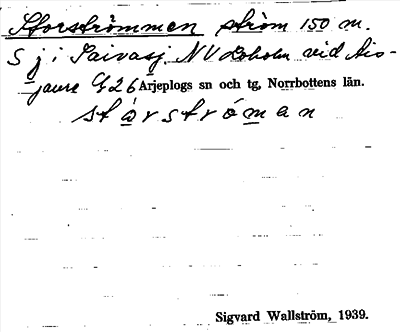 Storströmmen ström 150 m.
S j i Saivasj. NV Loholm vid Ais-
jaure G26 Arjeplogs sn och tg, Norrbottens län.
stårströman
Sigvard Wallström, 1939.